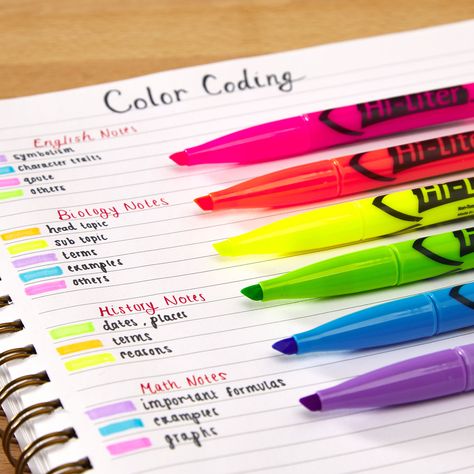 Color Coding
English Notes
symbolism
character traits
qoute
others
Biology Notes
head topic
sub topic
terms
examples
others
History Notes
dates, places
terms
reasons
Math Notes
important formulas
examples
graphs
Hi-Liter
Hi-Liter
Hi-Lite
Hi-L